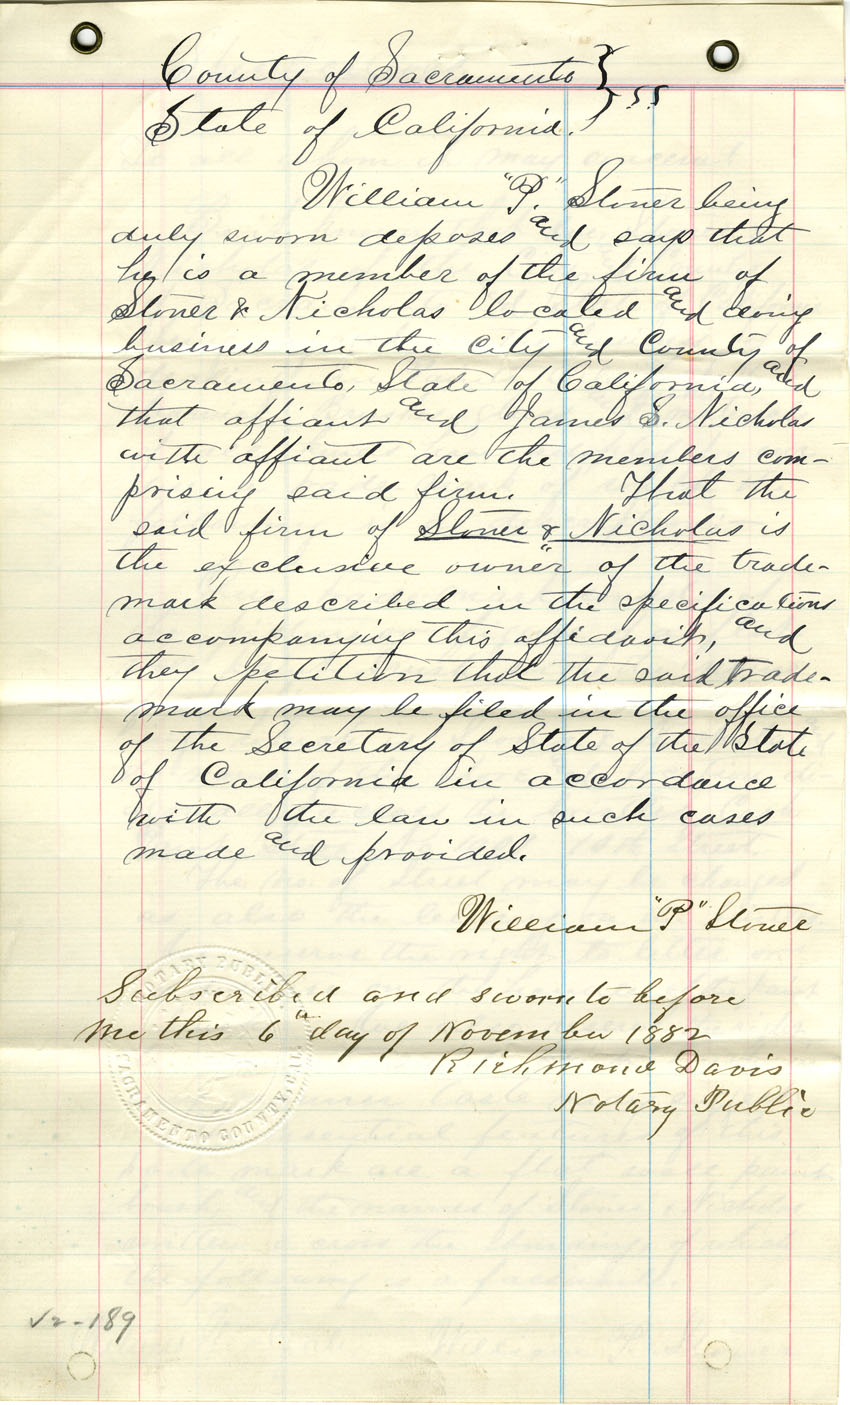 County of Sacramento } ss
State of California. }
William "P." Stoner being
duly sworn deposes and says that
he is a member of the firm of
Stoner & Nicholas located and doing
business in the City and County of
Sacramento, State of California, and
that affiant and James S. Nicholas
with affiant are the members com-
prising said firm. That the
said firm of Stoner & Nicholas is
the exclusive "owner" of the trade-
mark described in the specifications
accompanying this affidavit, and
they petition that the said trade-
mark may be filed in the office
of the Secretary of State of the State
of California in accordance
with the law in such cases
made and provided.
William "P" Stoner
Subscribed and sworn to before
me this 6th day of November 1882
Richmond Davis
Notary Public
NOTARY PUBLIC
SACRAMENTO COUNTY, CAL.
V2-189